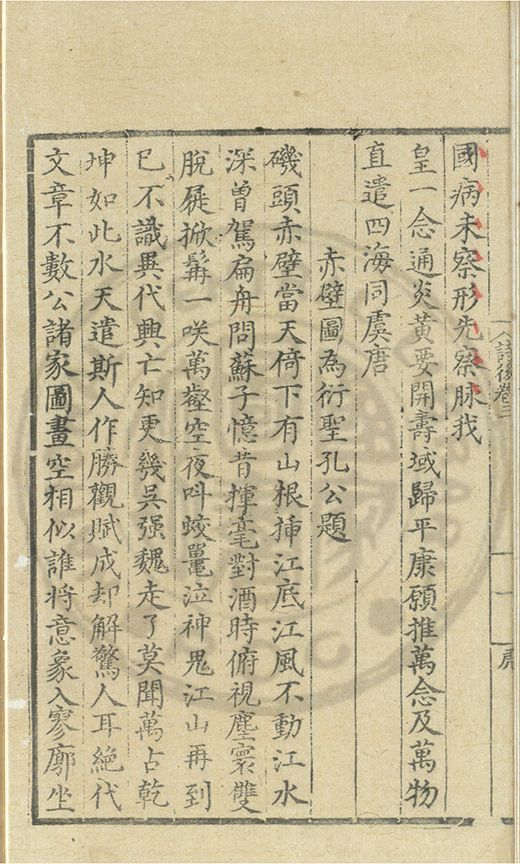 國病未察形先察脉我
皇一念通炎黄要開壽域歸平康願推萬念及萬物
直遣四海同虞唐
赤壁圖為衍聖孔公題
磯頭赤壁當天倚下有山根揷江底江風不動江水
深曽駕扁舟問蘇子憶昔揮毫對酒時俯視塵寰雙
脫屣掀髯一咲萬壑空夜呌蛟鼉泣神鬼江山再到
已不識異代興亡知更幾吳强魏走了莫聞萬占乾
坤如此水天遣斯人作勝觀賦成却解驚人耳絶代
文章不數公諸家圖畫空相似誰將意象入寥廓坐
詩後卷三